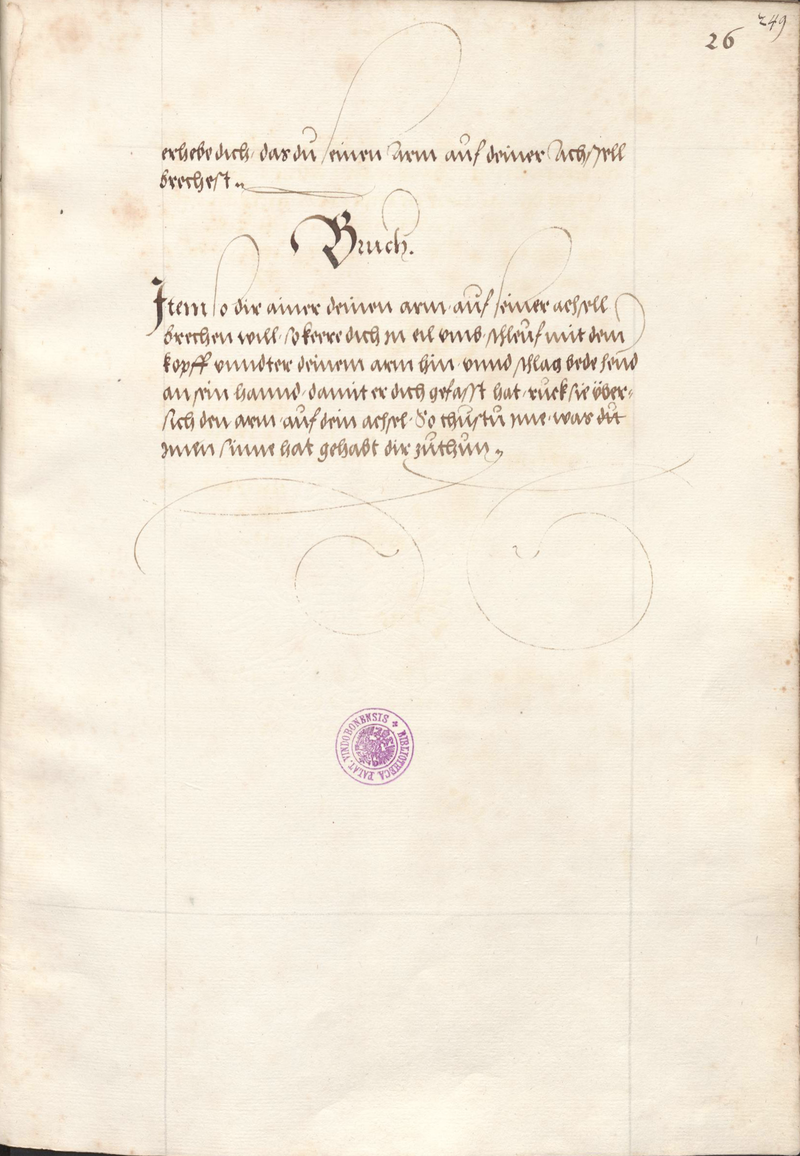 249
26
erhebe dich, das du seinen Arm auf deiner Achssell
brechest.
Bruch.
Item so dir ainer deinen arm auf seiner achsell
brechen will, so keere dich in eil umb, schleuf mit dem
kopff unndter deinem arm hin, unnd schlag bede hend
an sein hannd, damit er dich gefasst hat, ruck sie über-
sich den arm auf dein achsel. So thustu ime, was du
innen sinne hat gehabt dir zuthun.
BIBLIOTECA PALAT. VINDOBONENSIS